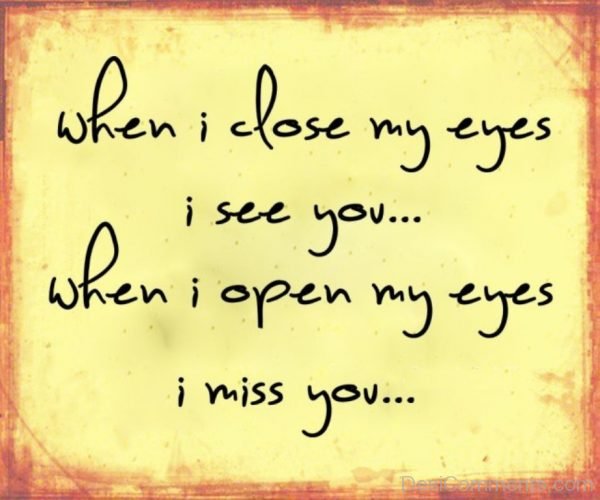 when i close my eyes
i see you...
when i open my eyes
i miss you...
DesiComments.com